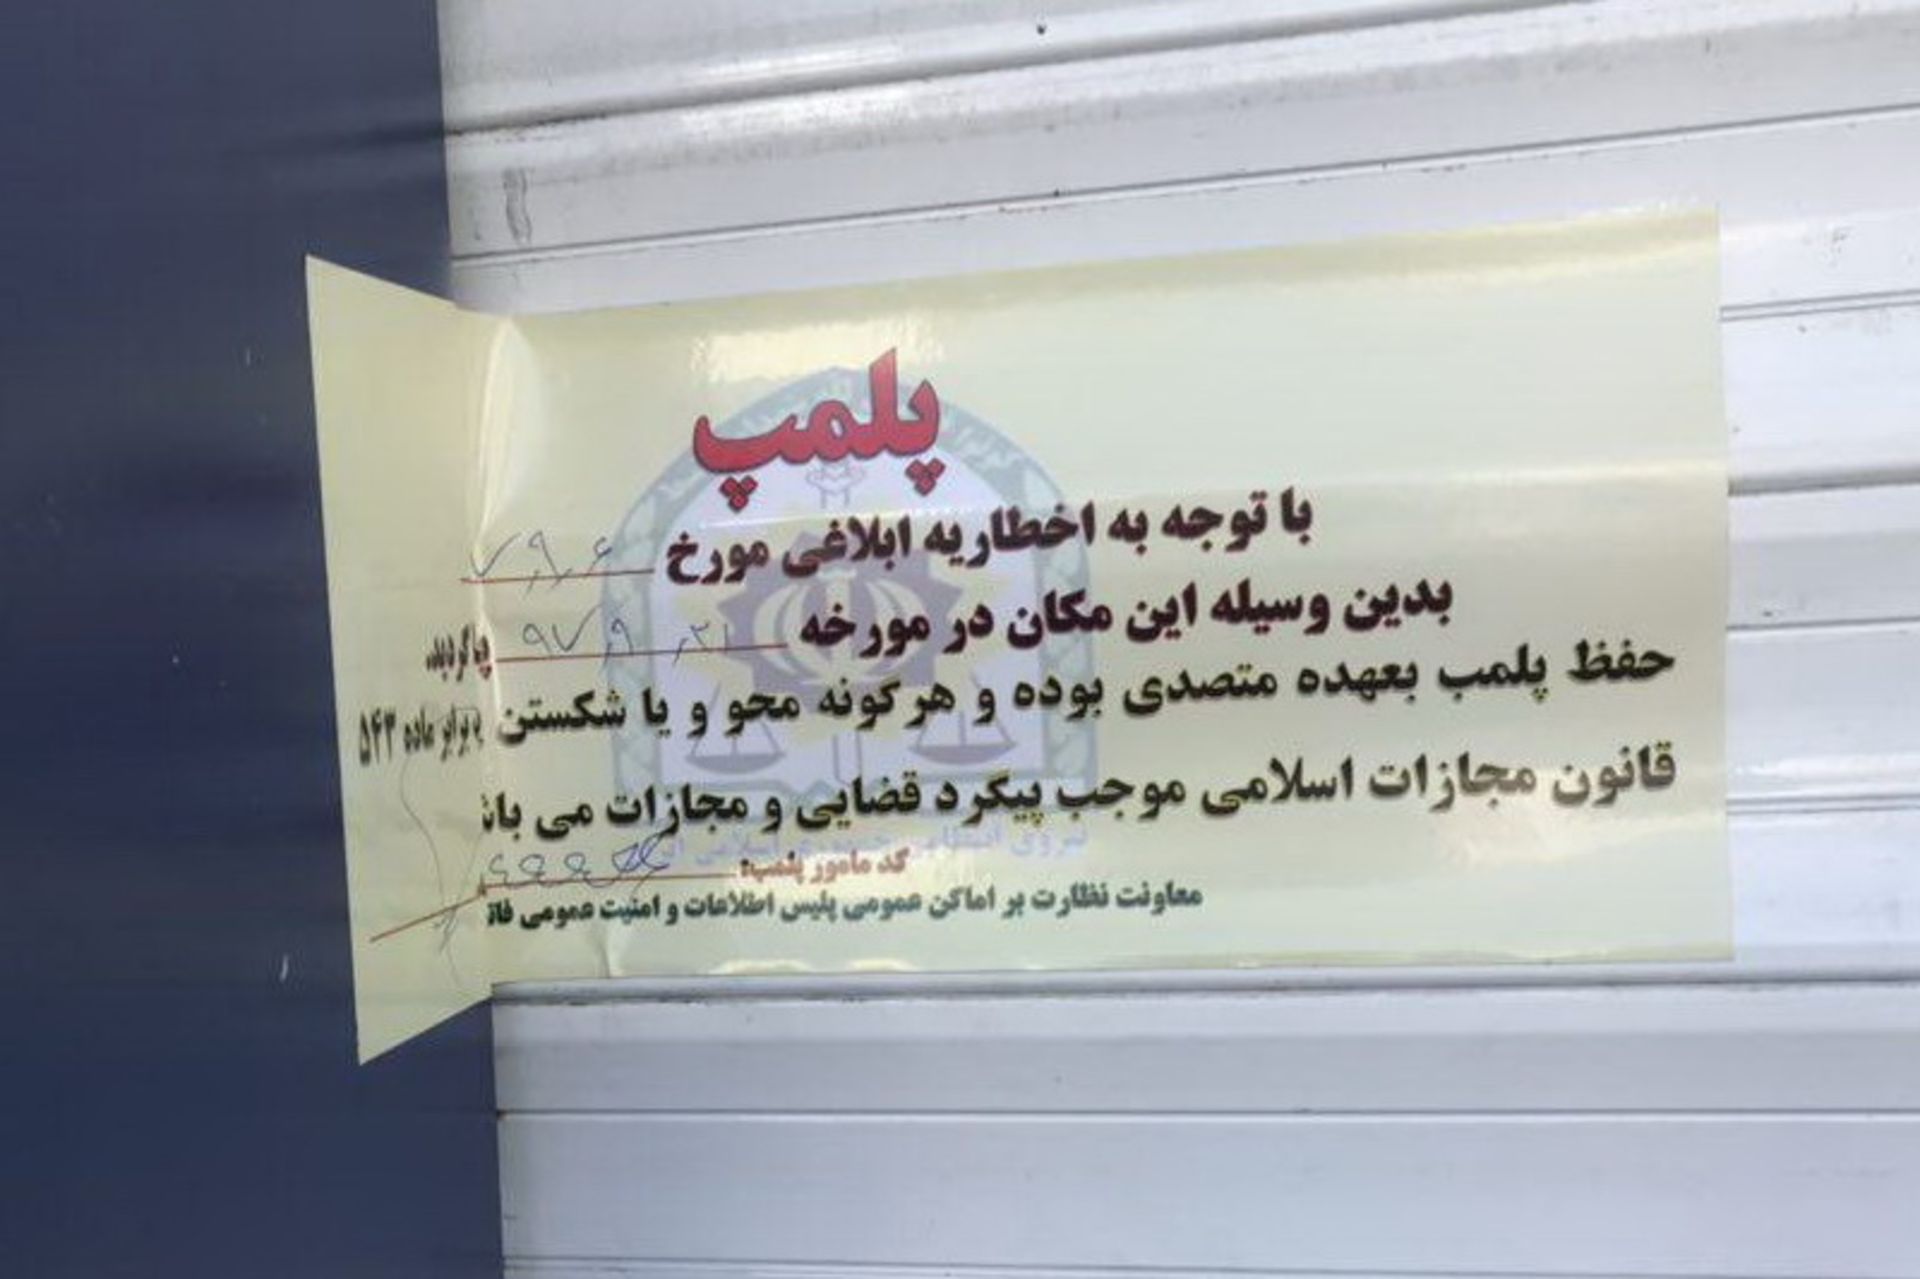 پلمپ
با توجه به اخطاریه ابلاغی مورخ
بدین وسیله این مکان در مورخه ۹۷٫۹٫۲۱ گردید.
حفظ پلمب بعهده متصدی بوده و هرگونه محو و یا شکستن برابر ماده ۵۴۳
قانون مجازات اسلامی موجب پیگرد قضایی و مجازات می باش
کد مامور پلمپ:
معاونت نظارت بر اماکن عمومی پلیس اطلاعات و امنیت عمومی فات